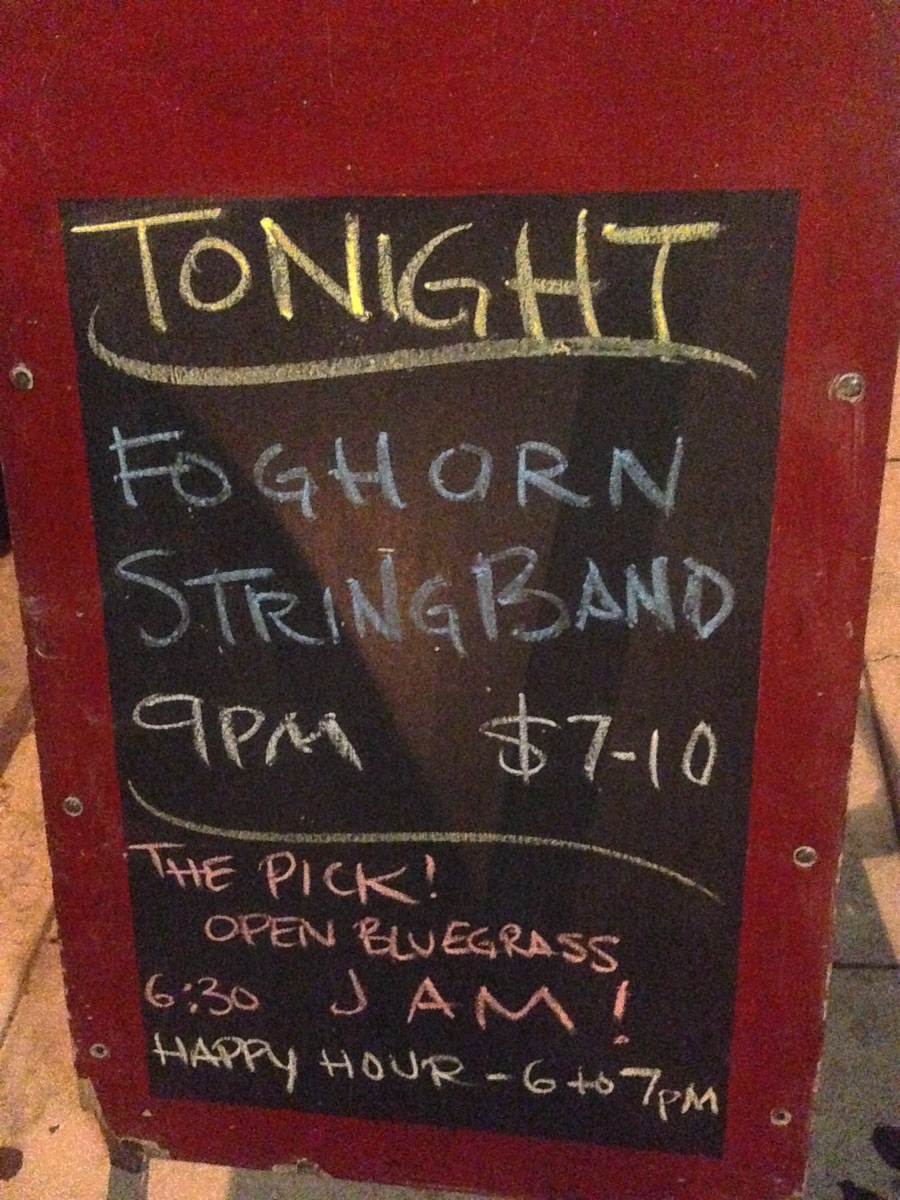 TONIGHT
FOGHORN
STRINGBAND
9PM $7-10
THE PICK!
OPEN BLUEGRASS
6:30 JAM!
HAPPY HOUR - 6 to 7PM